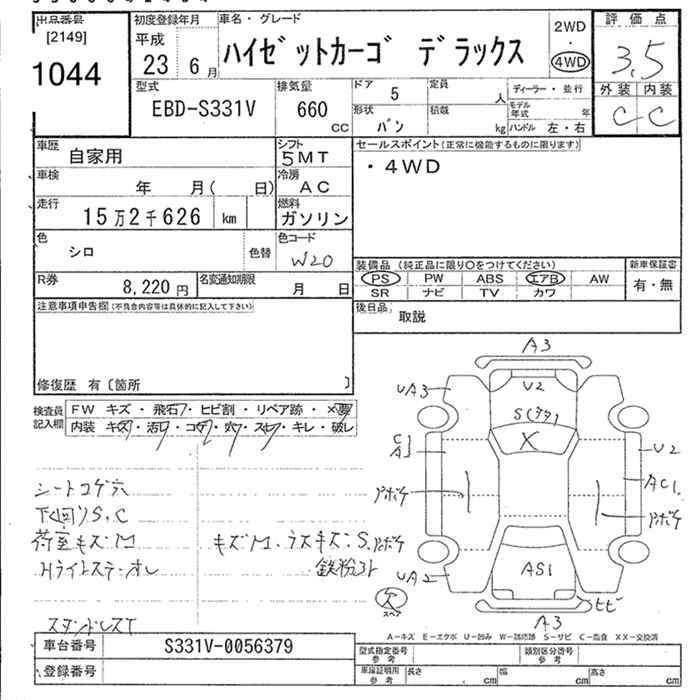 出品番号
[2149]
1044
初度登録年月
平成
23 6月
車名・グレード
ハイゼットカーゴ デラックス
2WD
・
4WD
評価点
3.5
外装 内装
C C
型式
EBD-S331V
排気量
660
CC
ドア
5
定員
人
形状
バン
積載
kg
ディーラー・並行
モデル年式 年
ハンドル 左・右
車歴
自家用
シフト
5MT
セールスポイント(正常に機能するものに限ります)
・4WD
車検
年 月( 日)
冷房
AC
走行
15万2千626 km
燃料
ガソリン
色
シロ
色替
色コード
W20
装備品 (純正品に限り〇をつけてください)
PS PW ABS エアB AW
SR ナビ TV カワ
新車保証書
有・無
R券
8,220円
名変通知期限
月 日
後日品
取説
注意事項申告欄(不具合内容等は具体的に記入して下さい)
修復歴 有〔箇所 〕
検査員記入欄
FW キズ・飛石・ヒビ割・リペア跡・×要
内装 キズ・汚レ・コゲ・穴・スレ・キレ・破レ
シートコゲ穴
下(回)りS,C
荷室キズM
キズM.ウスキズ:S.
Hライトステーオレ
鉄粉
A3
UA3
U2
S(タタ)
X
C1
A3
U2
AC1
ドアボチ
ドアボチ
ドアボチ
UA2
AS1
ヒビ
A3
欠
スペア
A-キズ E-エクボ U-凹み W-補修跡 S-サビ C-腐食 XX-交換済
車台番号
S331V-0056379
登録番号
型式指定番号
参考
類別区分番号
参考
車庫証明用
参考
長さ cm
幅 cm
高さ cm